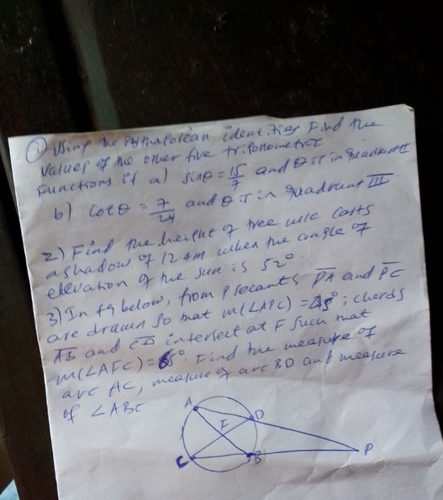 1) Using the pythagorean identities Find the
values of the other five trigonometric
functions if a) sinθ = 15/7 and θ I in quadrant II
b) cotθ = 7/24 and θ I in quadrant III
2) Find the height of tree casts
a shadow of 12.4m when the angle of
elevation of the sun is 52°.
3) In fig below, from P secants PA and PC
are drawn so that m(∠APC) = °; chords
AB and CD intersect at F such that
m(∠AFC) = °. Find the measure of
arc AC, measure of arc BD and measure
of ∠ABC
A
D
F
C
B
P